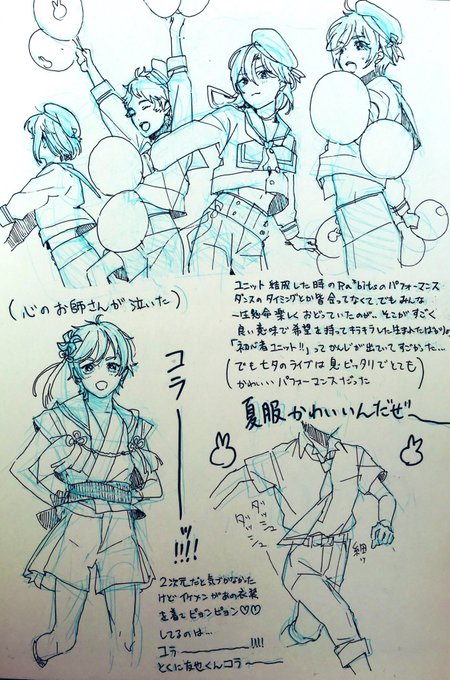 ユニット結成した時のRa*bitsのパフォーマンス
ダンスのタイミングとか皆合ってなくて、でもみんな
一生懸命楽しくおどっていたのが、そこがすごく
良い意味で希望を持ってキラキラした
「初心者ユニット!!」ってかんじが出ていてすごかった…
(でも七夕のライブは息ピッタリでとても
かわいいパフォーマンスだった)
(心のお師さんが泣いた)
夏服かわいいんだぜ〜
コラーーッ!!!!
ダッシュ
ダッシュ
細ッ
2次元だと気づかなかった
けどイケメンがあの衣装
を着てピョンピョン♡♡
してるのは…
コラ────!!!!
とくに友也くんコラ────